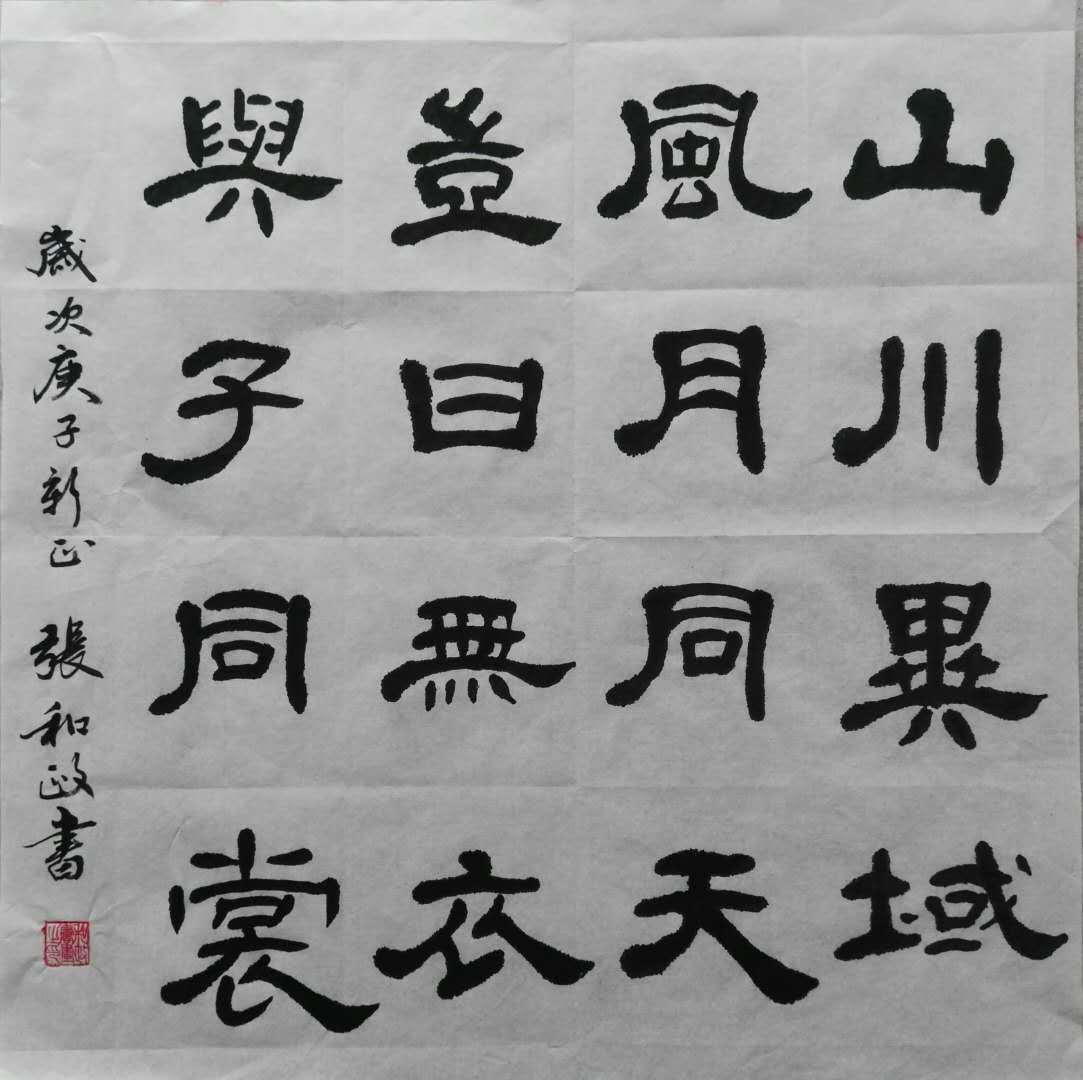 山川異域
風月同天
豈曰無衣
與子同裳
歲次庚子新正 張和政書